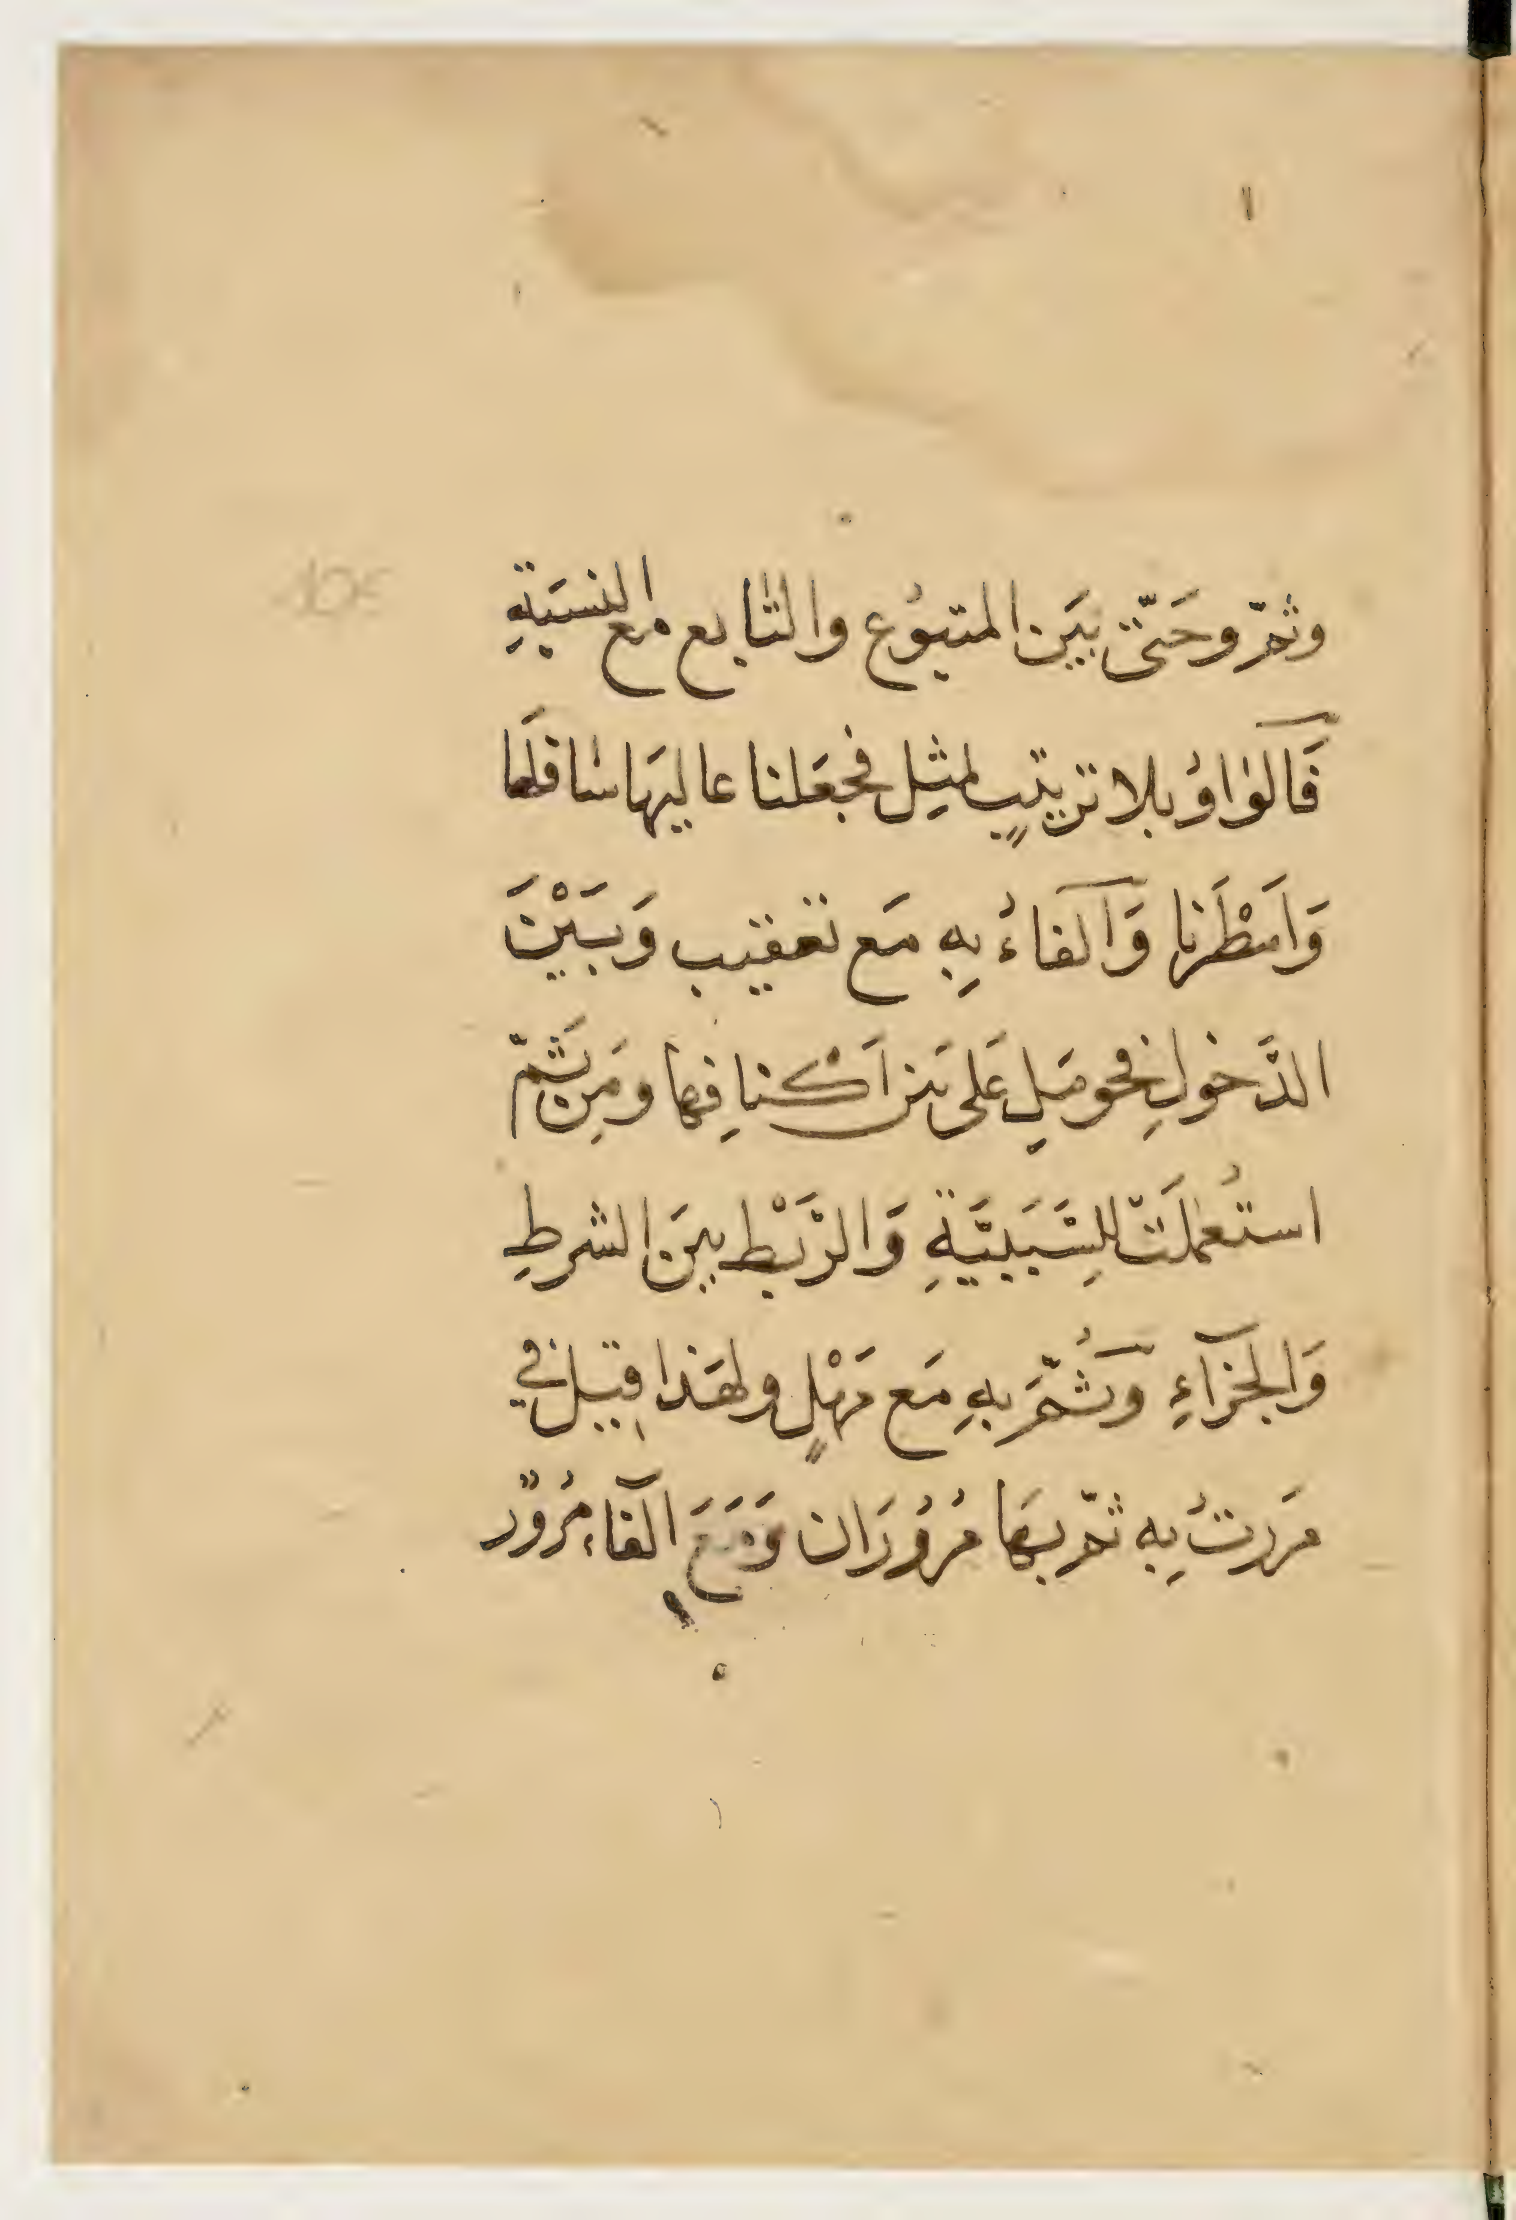 وثمّ وحَتّى بَين المتبوُع والتٰابع مع النسبَةِ
فَالوٰاوُ بلا ترتيبٍ لمثِل فجعَلنا عاليهَا سٰافلَها
وَامَطْرَنا وَالفاءُ بهِ مَع تعقيب وَبَيْنَ
الدَّخولِ فحومَلِ عَلى مَن اَكْنافِها ومَن ثَمّ
استُعملَتْ للِسَّبَبيَّةِ وَالرَّبْط بينَ الشرطِ
وَالجزآءِ وَثُمّ بهِ مَع مَهْلٍ ولهَذا قِيل في
مَررتُ بهِ ثمّ بهَا مُرُورَان وَمَعَ الفاءِ مُرُورٌ